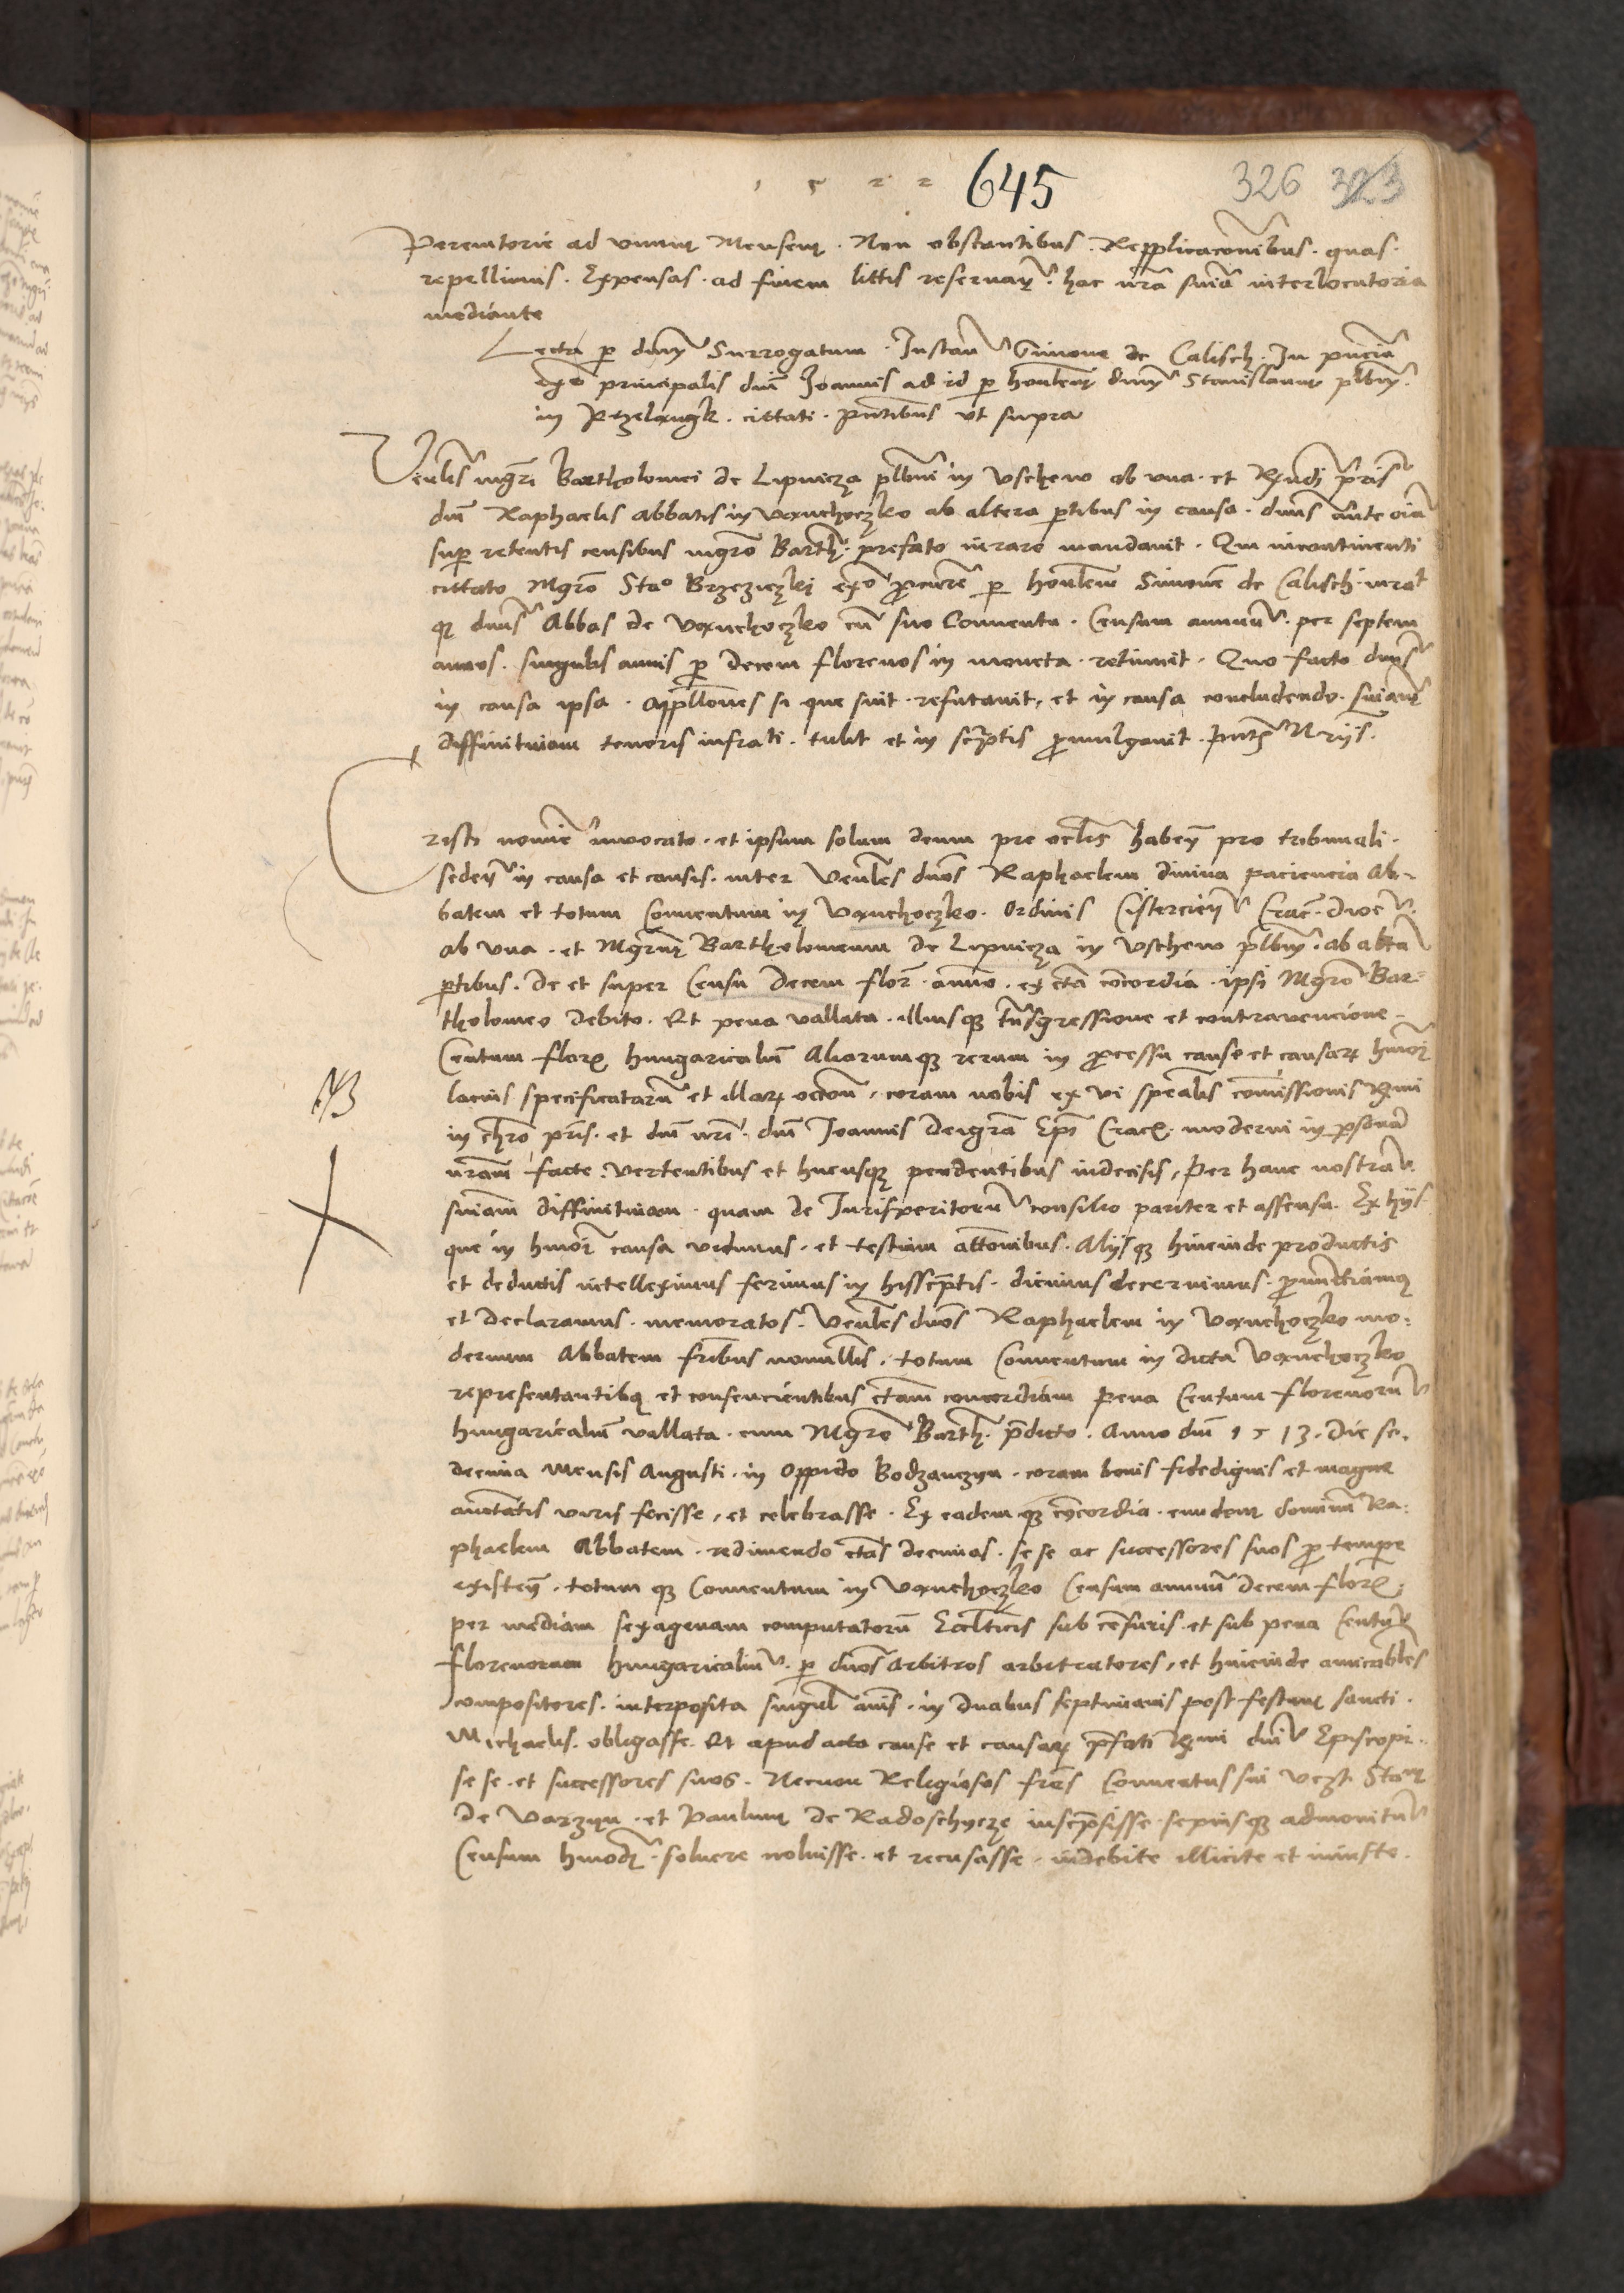 1 5 2 2 645 326 323
Peremtorie ad vnum Mensem . Non obstantibus . Repplicac̄onibus . quas .
repellimus . Expensas . ad finem littis reseruan̄ . hac nr̄a sn̄ia interlocutoria
mediante
Lecta p dn̄m Surrogatum . Instan̄ Simone de Calisch . In pn̄cia
ex̄o principalis dn̄i Joannis ad id p honlem̄ dn̄m Stanislaum plbn̄m
in . cittati . pn̄tibus vt supra
Venlis mgr̄i Bartholomei de Lipnicza plbn̄i in Vschew ab vna . et Rn̄di pr̄is
dn̄i Raphaelis Abbatis in Vanchoczko ab altera ptibus in causa . dn̄us an̄te oīa
sup retentis censibus mgr̄o Barth̄ . prefato iurare mandauit . Qui incontinenti
cittato Mgr̄o Stao Brzeziczki ex̄o procur̄e p honlem̄ Simonē de Calisch . iurat
q̄ dn̄us Abbas de Vanchoczko cū suo Conuentu . Censum annuū . per septem
annos . singulis annis p decem florenos in moneta . retinuit . Quo facto dn̄us
in causa ipsa . appllōnes si que sint . refutauit , et in causa concludendo . sn̄iam
diffinitiuam tenoris infrati . tulit et in scptis promulgauit . pn̄t Nriis .
Cristi nomīe inuocato . et ipsum solum deum pre oclis haben̄ pro tribunali .
seden̄ in causa et causis . inter Venles dn̄os Raphaelem diuina paciencia Ab-
batem et totum Conuentum in Vanchoczko . Ordinis Cistercien̄ Crac̄ . dioc̄ .
ab vna . et Mgrum̄ Bartholomeum de Lipnicza in Vschew plbn̄m . ab altā
ptibus . De et super Censu Decem flor̄ . annuo . ex ctā cōncordia . ipsi Mgr̄o Bar-
tholomeo debito . Et pena vallata . illiusq̄ tn̄sgressione et contrauencione -
Centum flor̄ hungaricaliū Aliarumq̄ rerum in processu cause et causar̄ hmōi
lacius specificatarū et illar̄ occōne , coram nobis ex vi spealis com̄issionis Rmi
in chr̄o pr̄is . et dn̄i nr̄i . dn̄i Joannis Dei gr̄a Ep̄i Crac̄ . moderni in psonā
nr̄am facte . vertentibus et hucusq̄ pendentibus indecisis , Per hanc nostrā .
sn̄iam diffinitiuam . quam de Jurisperitorū consilio pariter et assensu . Ex hijs
que in hmōi causa vidimus . et testium attōnibus . Alijsq̄ hincinde productis
et deductis intelleximus ferimus in hiis scptis . dicimus decernimus . pronun̄ctiamq̄
et declaramus . memoratos . Venles dn̄os Raphaelem in Vanchoczko mo-
dernum Abbatem fribus nonnullis , totum Conuentum in dicta Vanchoczko
representantibq̄ et consencientibus ctam concordiam pena Centum florenorū
hungaricaliū vallata . cum Mgr̄o Barth̄ . pdicto . Anno dn̄i 1513 . Die se-
decima mensis Augusti . in Oppido Bodzanczyn . coram bonis fidedignis et magne
auctātis viris fecisse , et celebrasse . Ex eademq̄ cōncordia . eundem dominū Ra-
phaelem Abbatem . redimendo ctas decimas . se se ac successores suos pro tempe
existen̄ . totumq̄ Conuentum in Vanchoczko Censum annuū decem flor̄ .
per mediam sexagenam computatorū Eccl̄ticis sub cēsuris . et sub pena Centum̄
florenorum hungaricaliū . p dn̄os Arbitros arbitratores , et hincinde amicables
compositores . interposita singul̄ annis . in duabus septimanis post festum sancti .
Michaelis . obligasse . Et apud acta cause et causar̄ pfati Rmi dn̄i Episcopi .
se se . et successores suos . Necnon Religiosos fr̄es Conuentus sui vczt . Staum
de Varzyn . et Paulum de Radoschycze inscpsisse . sepiusq̄ admonitū
Censum hmōi . soluere noluisse . et recusasse . indebite illicite et iniuste .